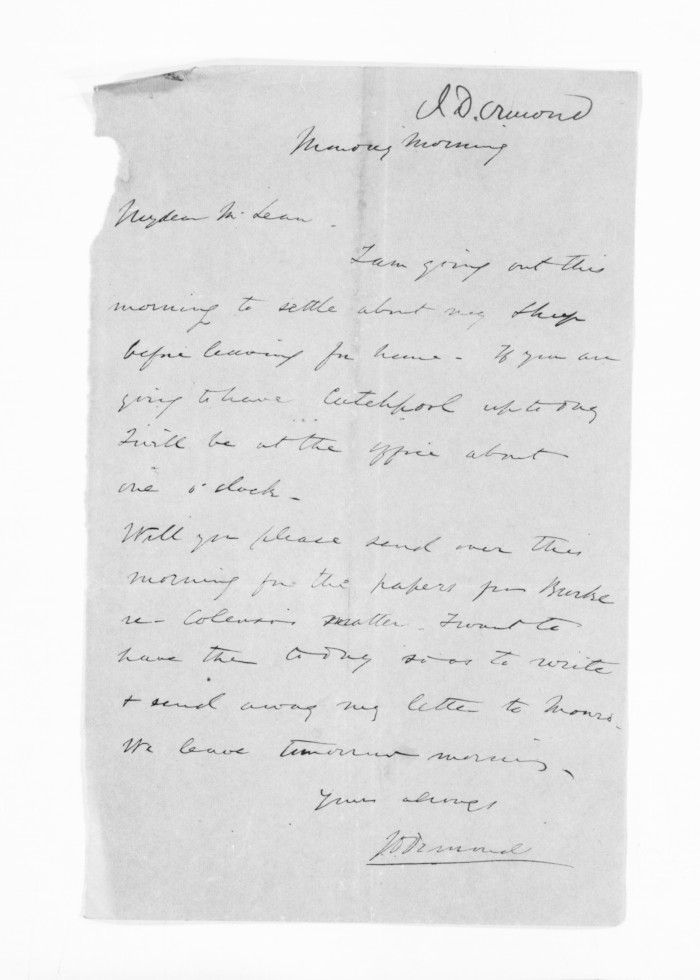 J. D. Ormond
Monday Morning
My dear McLean.
I am going out this
morning to settle about my sheep
before leaving for home - If you are
going to have Catchpool up today
I will be at the office about
one o'clock -
Will you please send over this
morning for the papers from Burke
re - Colenso's matter. I want to
have them today so as to write
+ send away my letter to Monro.
We leave tomorrow morning.
Yours always
J D Ormond